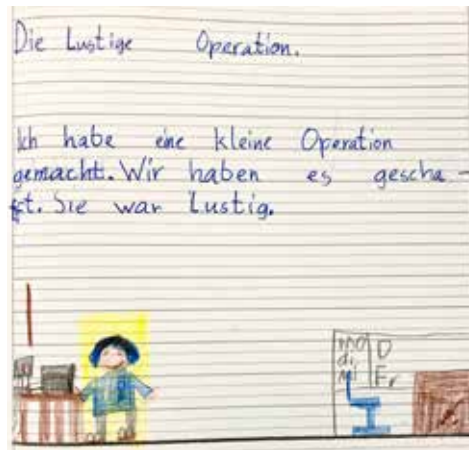 Die Lustige Operation.
Ich habe eine kleine Operation
gemacht. Wir haben es gescha-
ft. Sie war Lustig.
mo D
di
Mi Fr